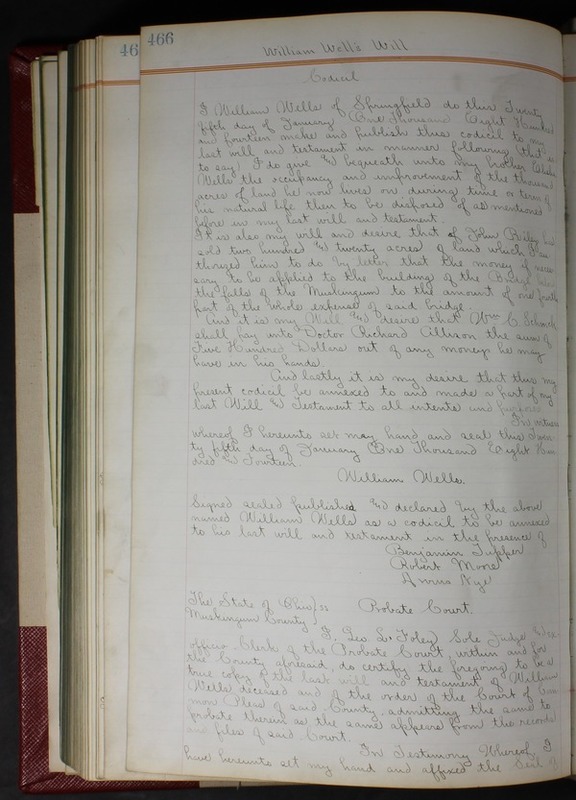 46
466
William Well's Will
Codical
I William Wells of Springfield do this Twenty
fifth day of January One Thousand Eight Hundred
and fourteen make and publish this codical to my
last will and testament in manner following that is
to say I do give & bequeath unto my brother
Wells the occupancy and improvement of the thousand
acres of land he now lives on during time or term of
his natural life then to be disposed of as mentioned
before in my last will and testament.
It is also my will and desire that if John
sold two hundred & twenty acres of land which I
thorized him to do by letter that the money if neces
sary to be applied to the building of the Bridge
the falls of the Muskingum to the amount of one fourth
part of the whole expense of said bridge.
And it is my Will & desire that Wm C. Schenck
shall pay into Doctor Richard Allison the sum of
Five Hundred Dollars out of any moneys he may
have in his hands.
And lastly it is my desire that this my
present codical be annexed to and made a part of my
last Will & Testament to all intents and purposes
In witness
whereof I hereunto set may hand and seal this Twen
ty fifth day of January One Thousand Eight Hun
dred & Fourteen.
William Wells.
Signed sealed published & declared by the above
named William Wells as a codical to be annexed
to his last will and testament in the presence of
Benjamin Tupper
Robert Moore
Nye
The State of Ohio } ss Probate Court.
Muskingum County
I, Geo. L. Foley Sole Judge & ex
officio Clerk of the Probate Court, within and for
the County aforesaid, do certify the foregoing to be a
true copy of the last will and testament of William
Wells deceased and of the order of the Court of Com
mon Pleas of said County, admitting the same to
probate therein as the same appears from the records
and files of said Court.
In Testimony Whereof, I
have hereunto set my hand and affixed the Seal of